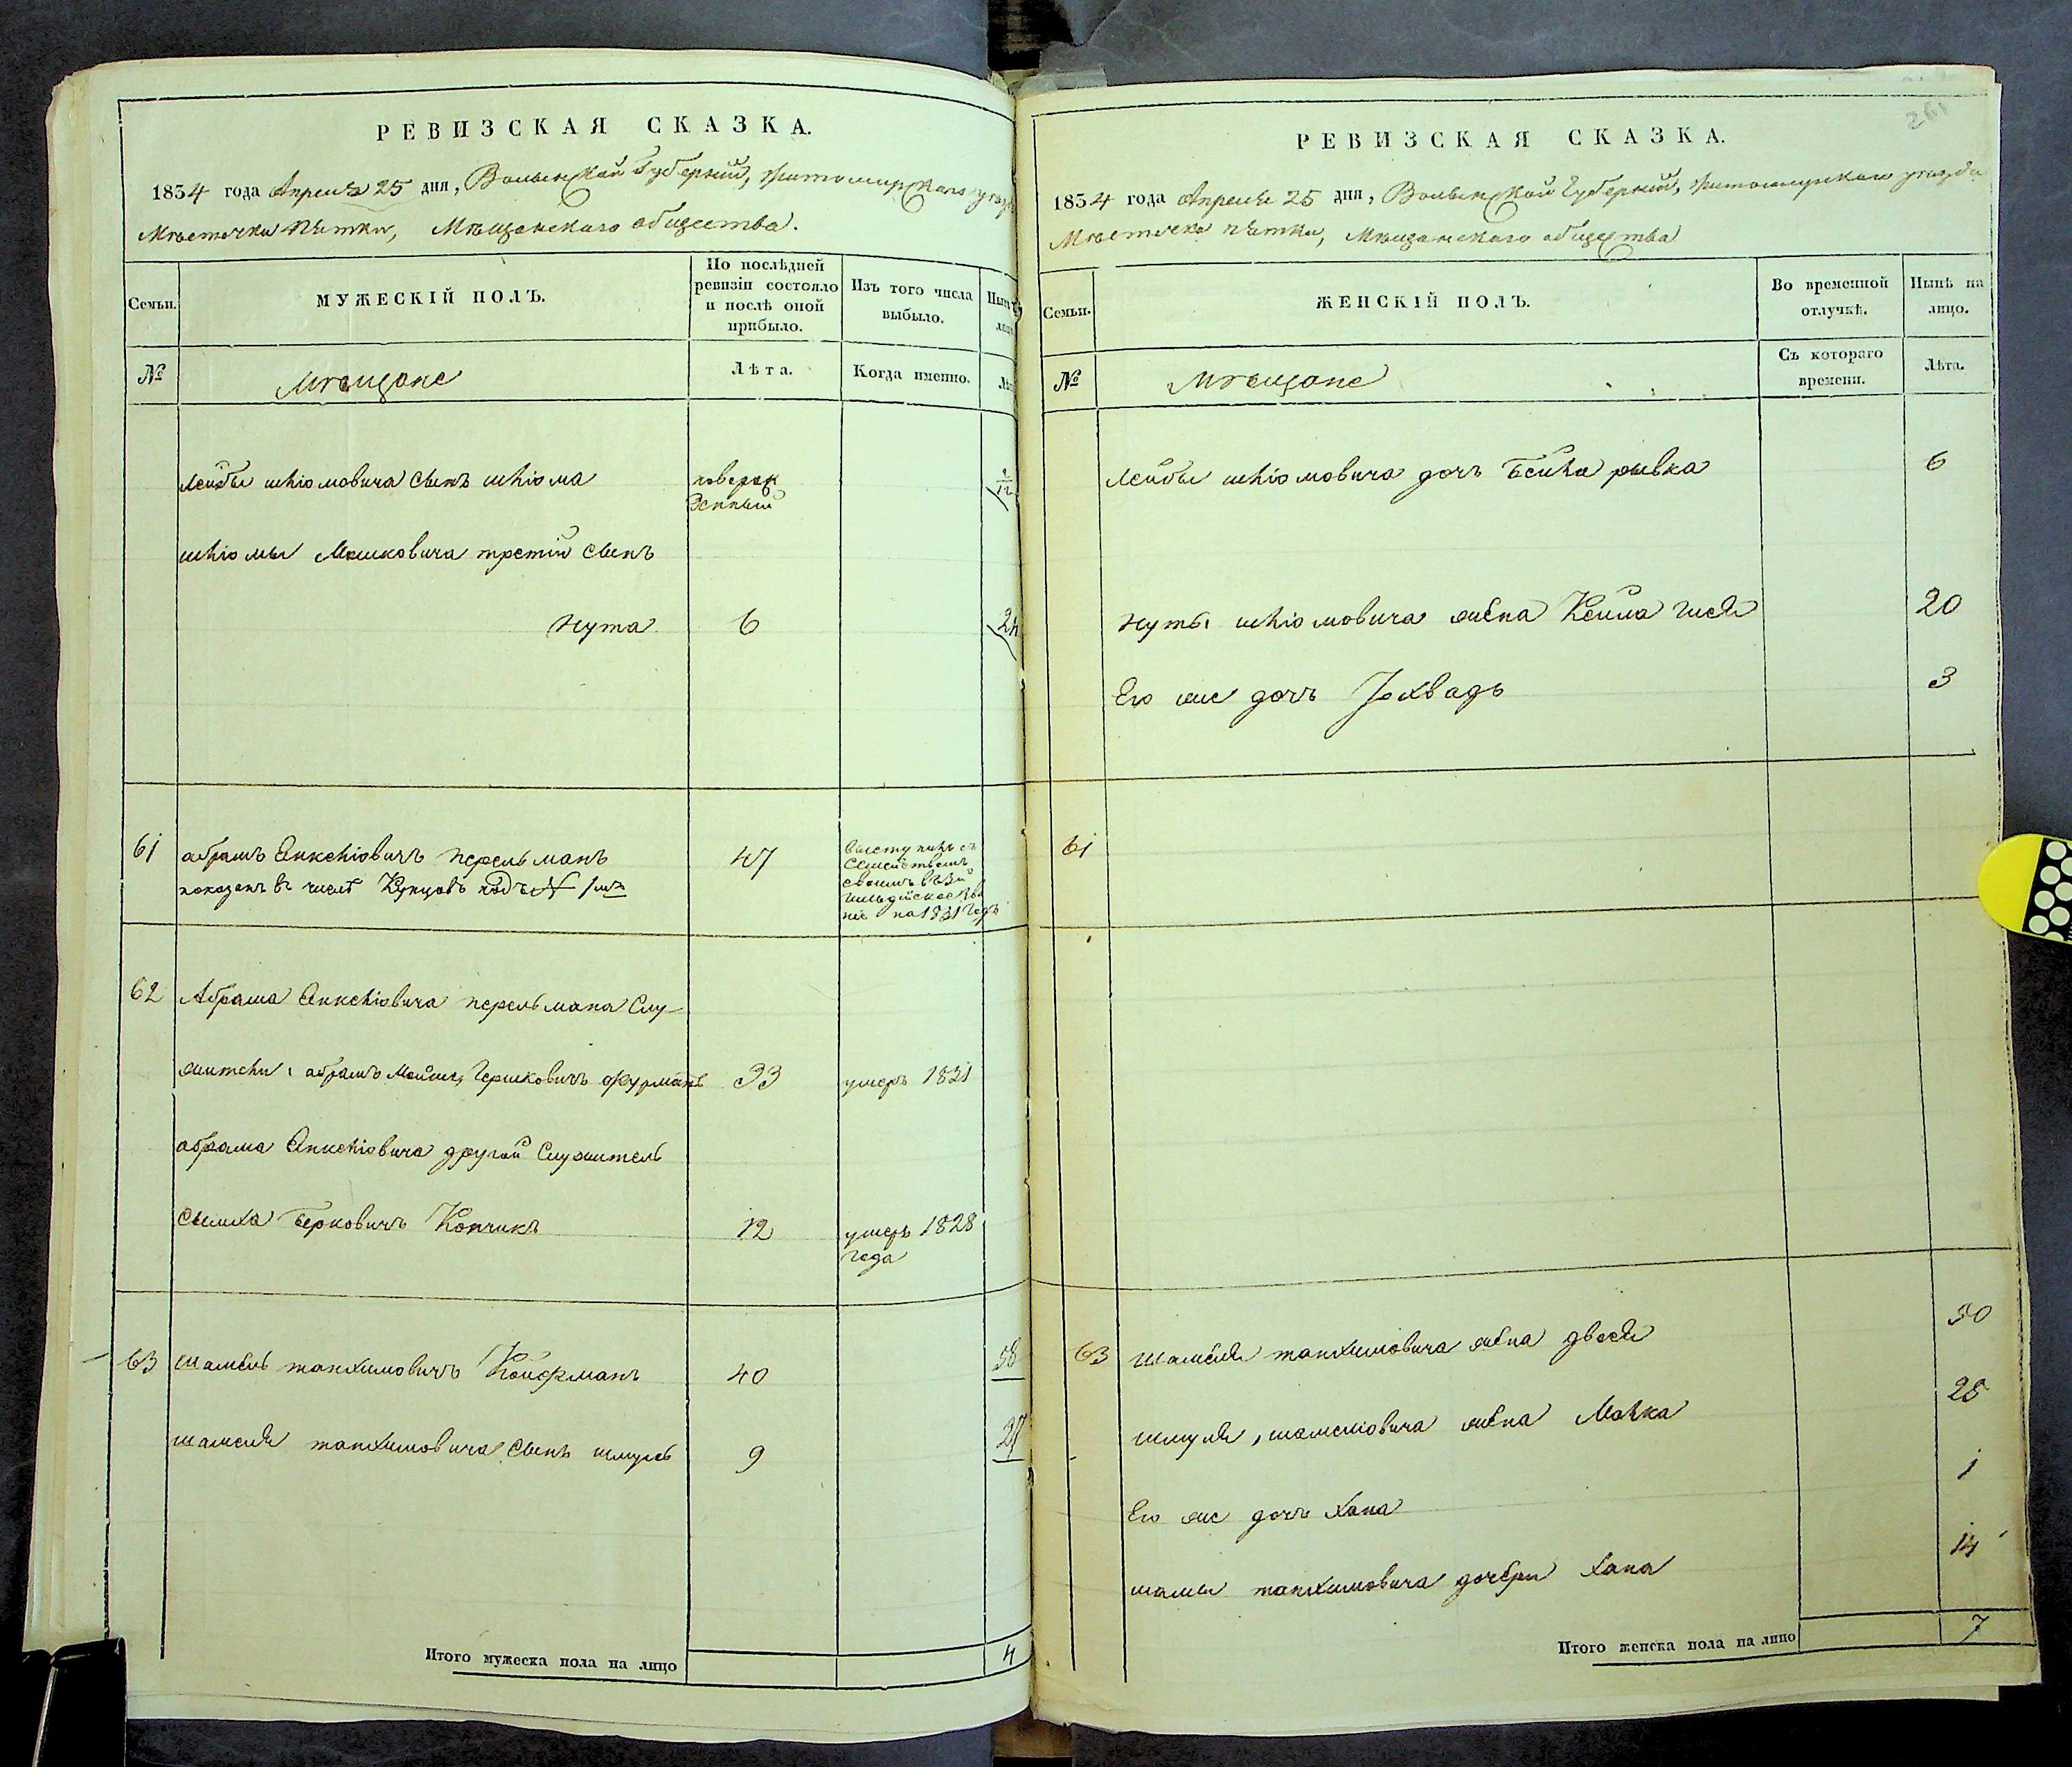 РЕВИЗСКАЯ СКАЗКА.
1834 года Апреля 25 дня, Волынской Губернии, Житомирского
Мѣстечка Пятки, Мѣщанского общества.
Семьи.
МУЖЕСКІЙ ПОЛЪ.
По послѣдней ревизіи состояло и послѣ оной прибыло.
Изъ того числа выбыло.
№
Мѣщане
Лѣта.
Когда именно.
Лейбы шліомовича сынъ шліома
новорож
денный
шліомы Мошковича третій сынъ
Нута 6 24
61 абрамъ Янкеліовичъ перельманъ 47
показанъ въ числѣ Купцовъ подъ № 1мъ
выступилъ съ
Семействомъ
своимъ въ 3й
гильдійское зва
ніе на 1831 годъ
62 Абрама Янкеліовича перельмана Слу-
жители, абрамъ Мойше, Гершковичъ фурманъ 33 умеръ 1831
абрама Янкеліовича другой Служитель
Сымха Берковичъ Копчикъ 12 умеръ 1828
года
63 шамель танхимовичъ Койфманъ 40 58
шамеля танхимовича сынъ шмуль 9 27
Итого мужеска пола на лицо 4
261
РЕВИЗСКАЯ СКАЗКА.
1834 года Апреля 25 дня, Волынской Губерніи, Житомирскаго уезда
Мѣстечка пятки, Мѣщанского общества
Семьи.
ЖЕНСКІЙ ПОЛЪ.
Во временной отлучкѣ.
Нынѣ на лицо.
№
Мѣщане
Съ котораго времени.
Лѣта.
Лейбы шліомовича дочь Бейла рывка 6
Нуты шліомовича жена Кейла 20
Его же дочь Іохвадь 3
61
63 Шамеля танхимовича жена двося 50
шмуля, шамеліовича жена Малка 25
Его же дочь Хана 1
шамы танхимовича дочери Хана 14
Итого женска пола на лицо 7